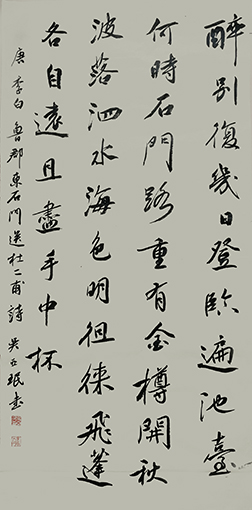 醉別復幾日登臨遍池臺
何時石門路重有金樽開秋
波落泗水海色明徂徠飛蓬
各自遠且盡手中杯
唐李白魯郡東石門送杜二甫詩